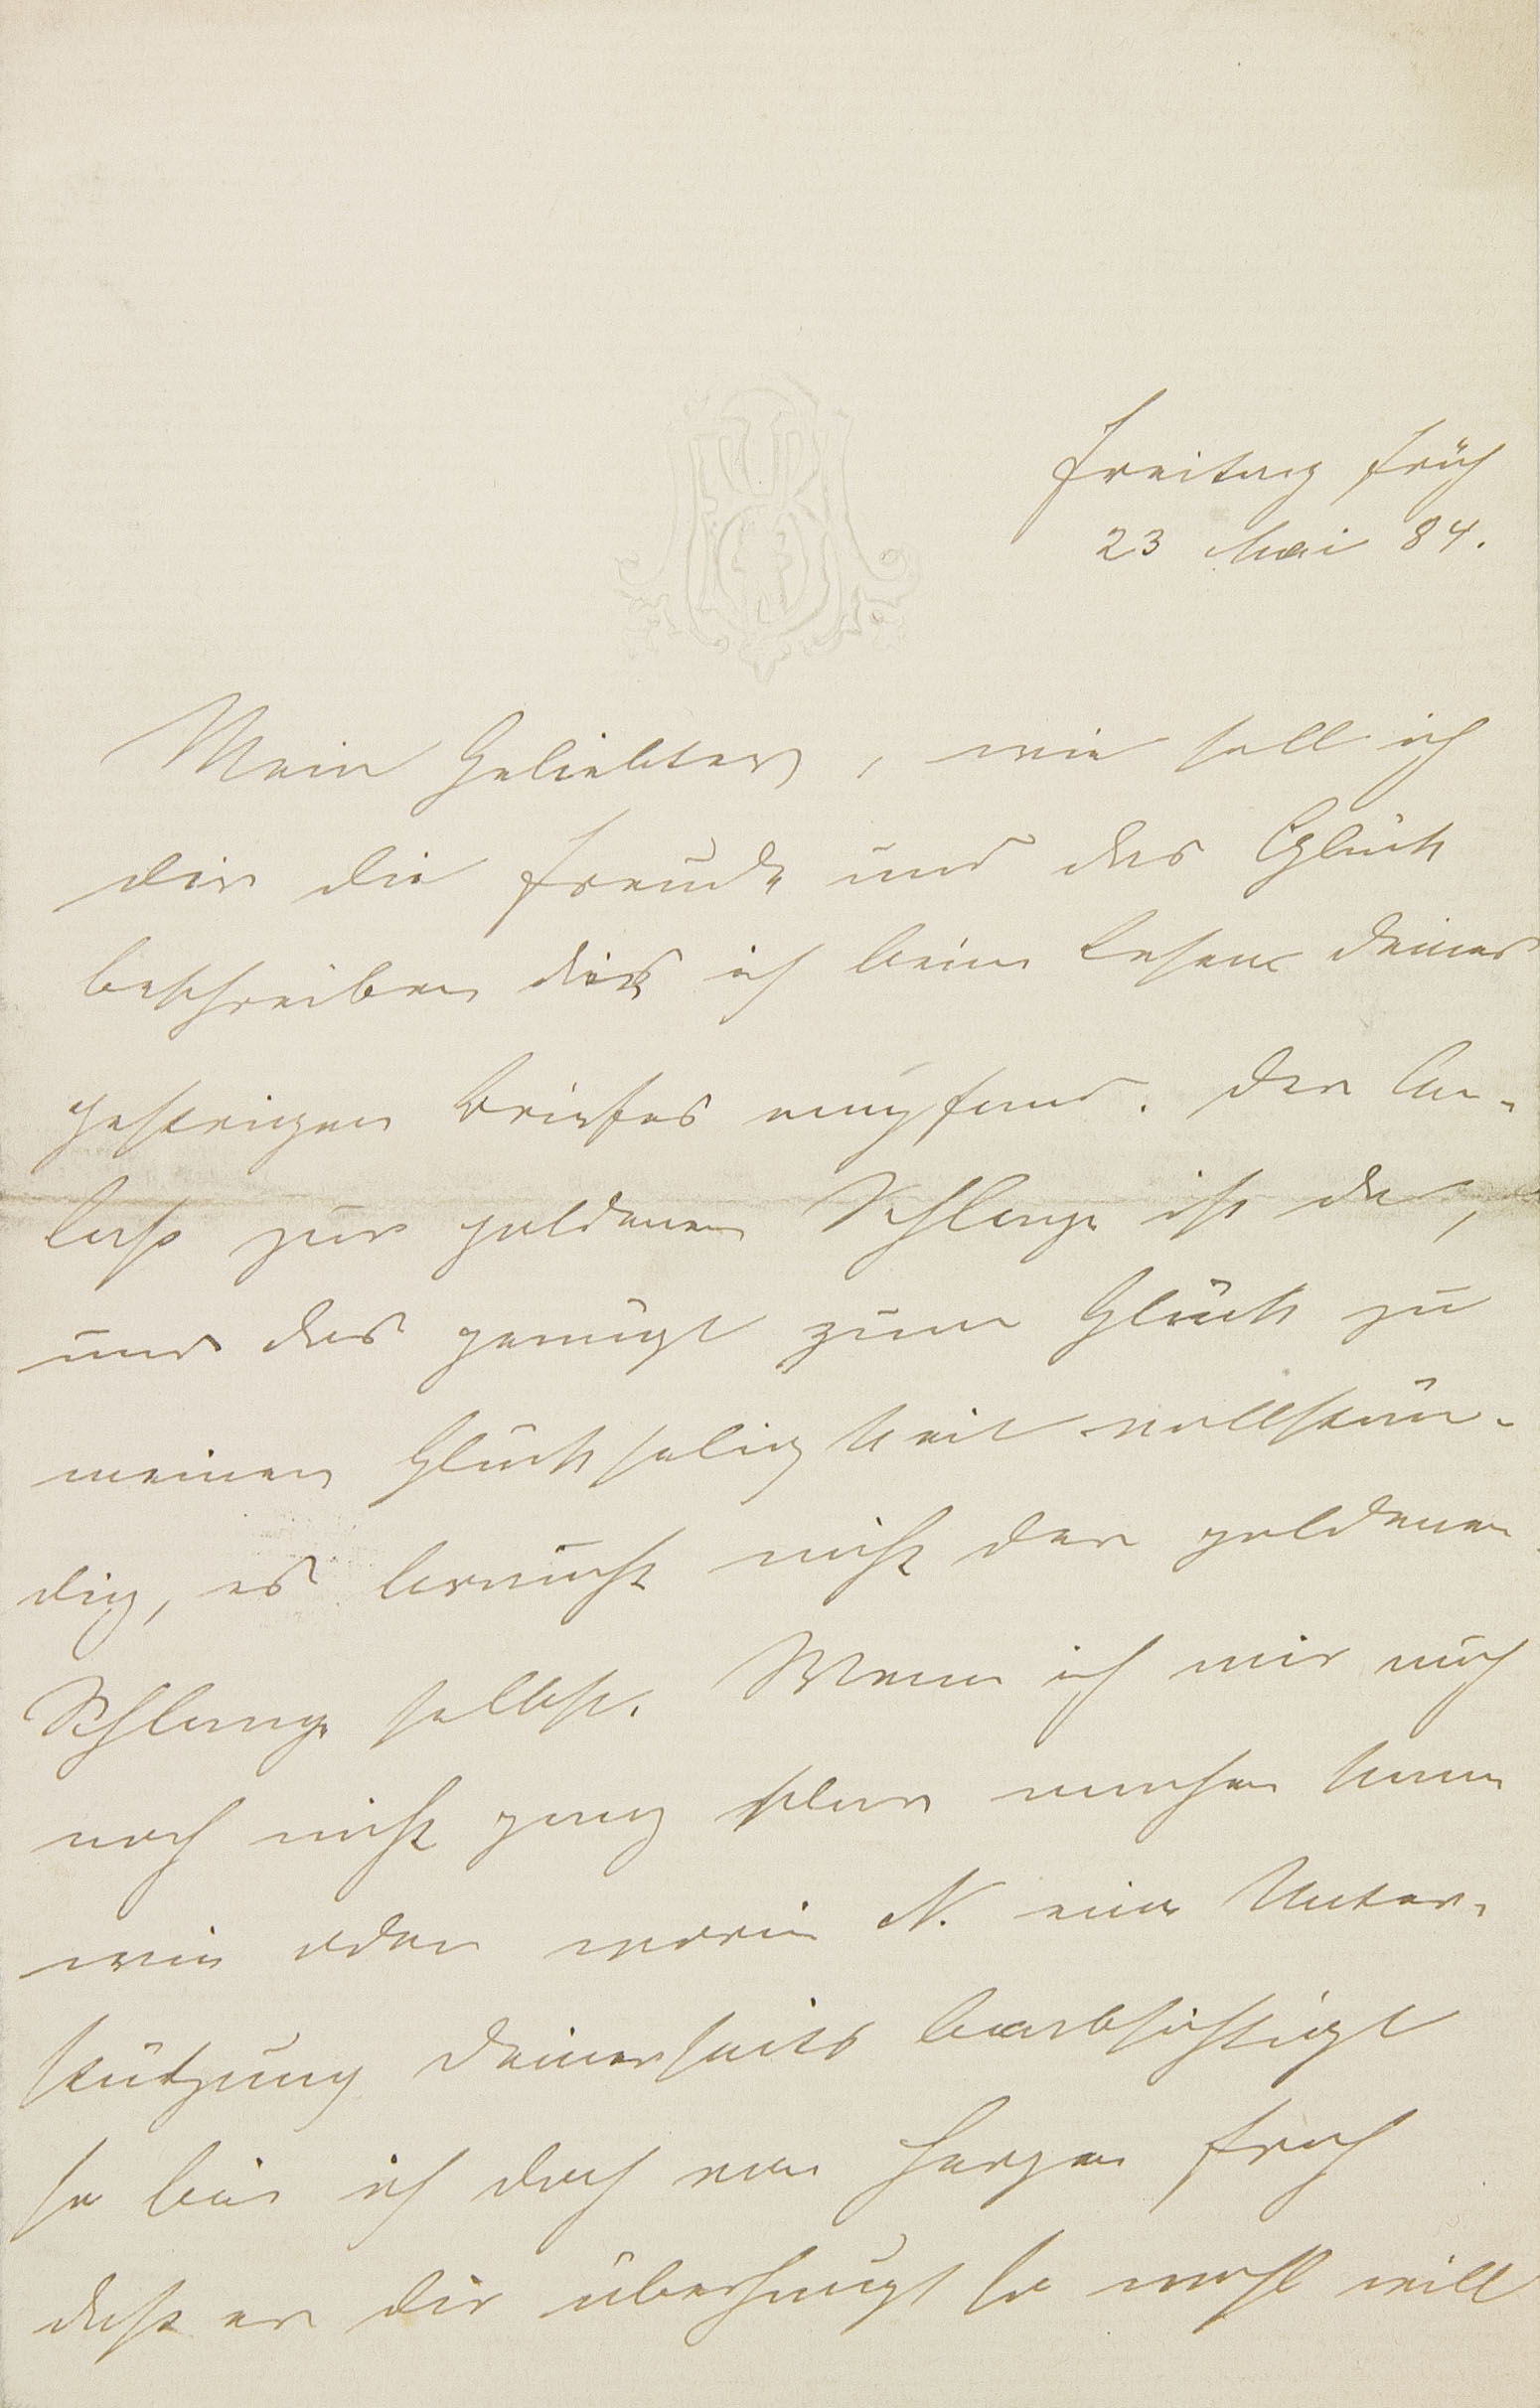 Freitag früh
23 Mai 84.
Mein Geliebter, wie soll ich
dir die Freude und das Glück
beschreiben die ich beim Lesen deines
gestrigen Briefes empfand. Der An-
lass zur goldenen Schlange ist da,
und das genügt zum Glück zu
meiner Glückseligkeit vollstän-
dig, es braucht nicht der goldenen
Schlange selbst. Wenn ich mir auch
noch nicht ganz klar machen kann
wie oder worin N. eine Unter-
stützung deinerseits beabsichtigt
so bin ich doch von Herzen froh
dass er dir überhaupt so wohl will